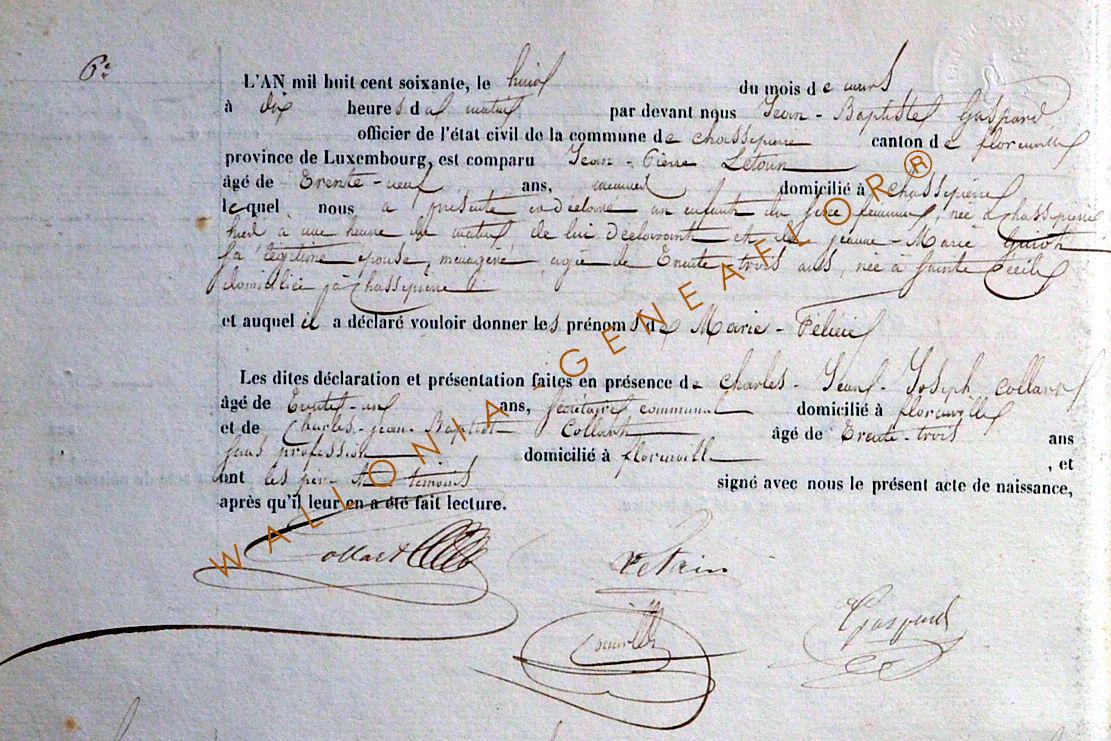 6e
L'AN mil huit cent soixante, le huit du mois de mars
à dix heures du matin par devant nous Jean-Baptiste Gaspard
officier de l'état civil de la commune de chassepierre canton de florenville
province de Luxembourg, est comparu Jean-Pierre
âgé de Trente-neuf ans, domicilié à chassepierre
lequel nous a présenté un enfant du sexe féminin, née à Chassepierre
hier à une heure du matin de lui Déclarant et de jeanne-Marie Guiot
sa légitime épouse, ménagère, agée de Trente-trois ans, née à Sainte Cécile
domiciliée à Chassepierre
et auquel il a déclaré vouloir donner les prénoms de Marie-Félicie
Les dites déclaration et présentation faites en présence de Charles-Jean-Joseph Collart
âgé de ans, secrétaire communal domicilié à florenville
et de Charles-jean-Baptiste Collart âgé de Trente-trois ans
sans profession domicilié à florenville , et
ont les père et témoins signé avec nous le présent acte de naissance,
après qu'il leur en a été fait lecture.
Collart
Gaspard
WALLONIA-GENEAFLOR®